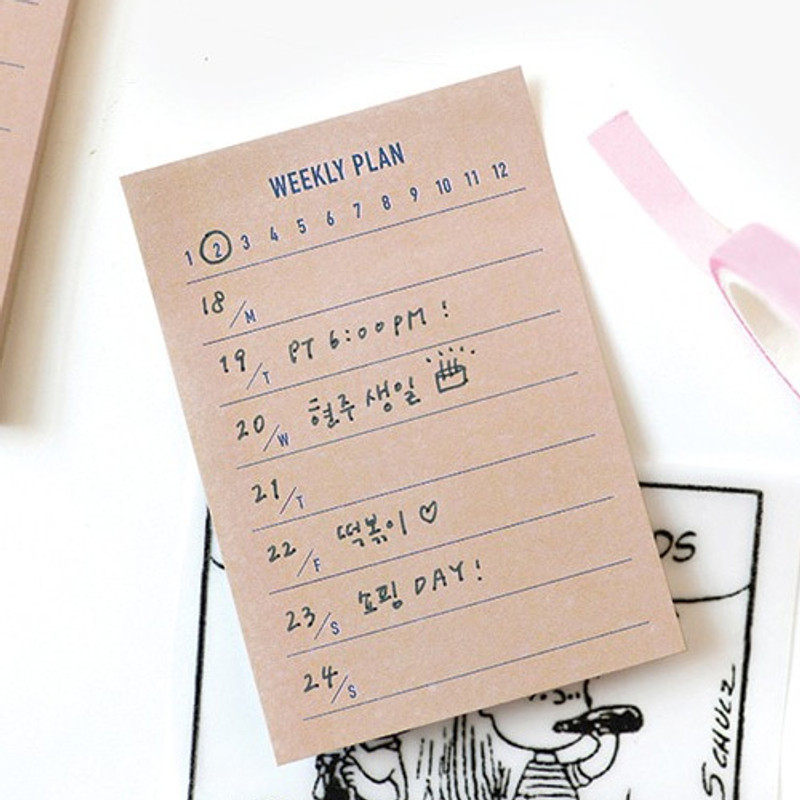 WEEKLY PLAN
1 2 3 4 5 6 7 8 9 10 11 12
18/M
19/T PT 6:00PM !
20/W 현주 생일
21/T
22/F 떡볶이 ♡
23/S 쇼핑 DAY!
24/S
OS
SCHULZ